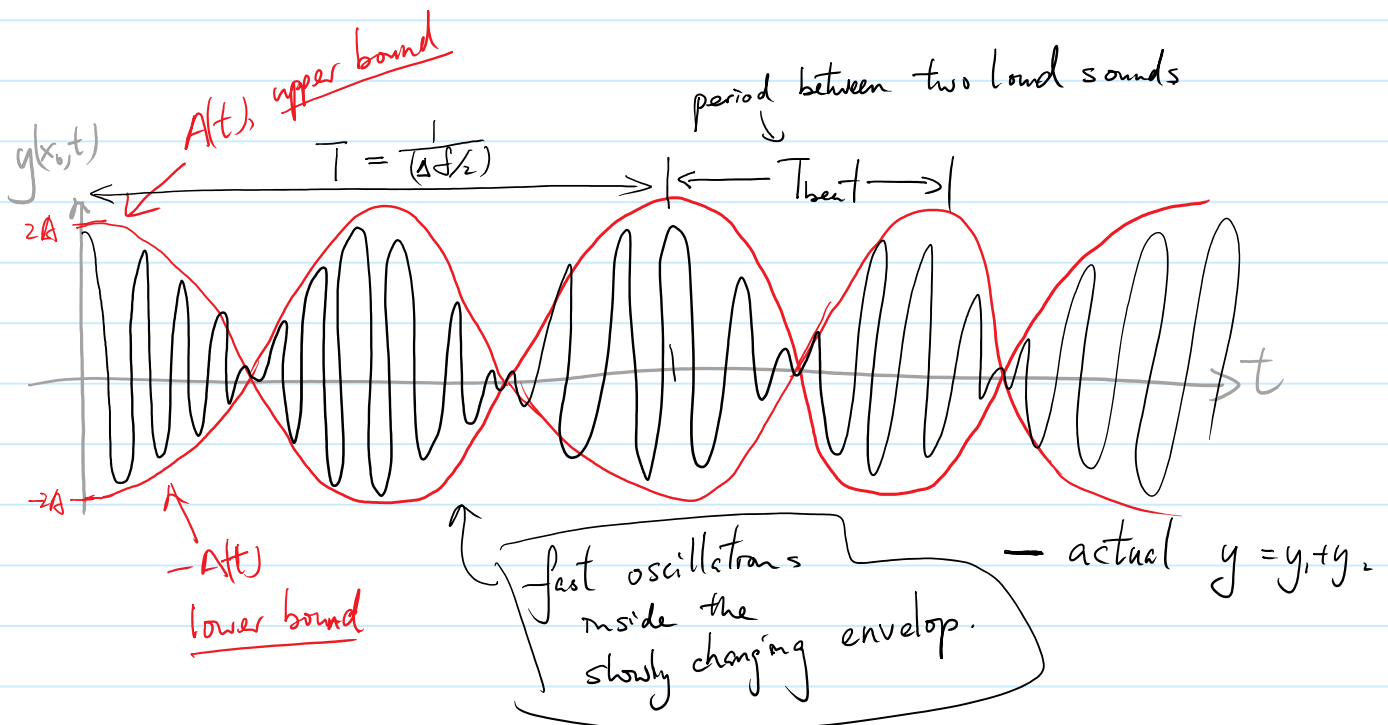 A(t), upper bound
period between two loud sounds
y(x₀,t)
T = 1/(Δf/2)
T_beat
2A
t
-2A
-A(t)
lower bound
fast oscillatrons
inside the
slowly changing envelop.
— actual y = y₁+y₂